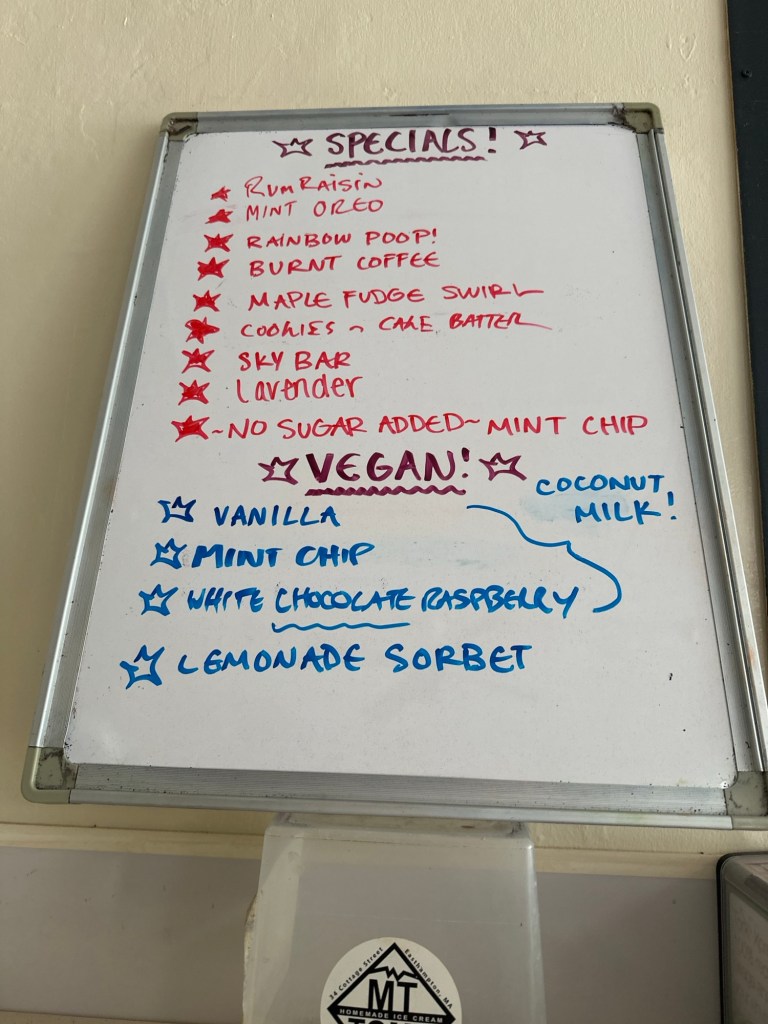 SPECIALS!
RUM RAISIN
MINT OREO
RAINBOW POOP!
BURNT COFFEE
MAPLE FUDGE SWIRL
COOKIES ~ CAKE BATTER
SKY BAR
Lavender
~NO SUGAR ADDED~ MINT CHIP
VEGAN!
COCONUT
MILK!
VANILLA
MINT CHIP
WHITE CHOCOLATE RASPBERRY
LEMONADE SORBET
34 Cottage Street Easthampton, MA
MT
HOMEMADE ICE CREAM